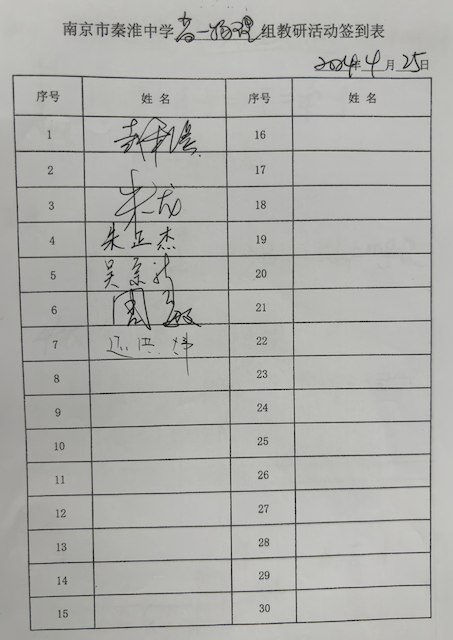 南京市秦淮中学高一物理组教研活动签到表
2024年4月25日
序号 姓名 序号 姓名
1 16
2 17
3 朱龙 18
4 朱正杰 19
5 吴 20
6 周 21
7 22
8 23
9 24
10 25
11 26
12 27
13 28
14 29
15 30